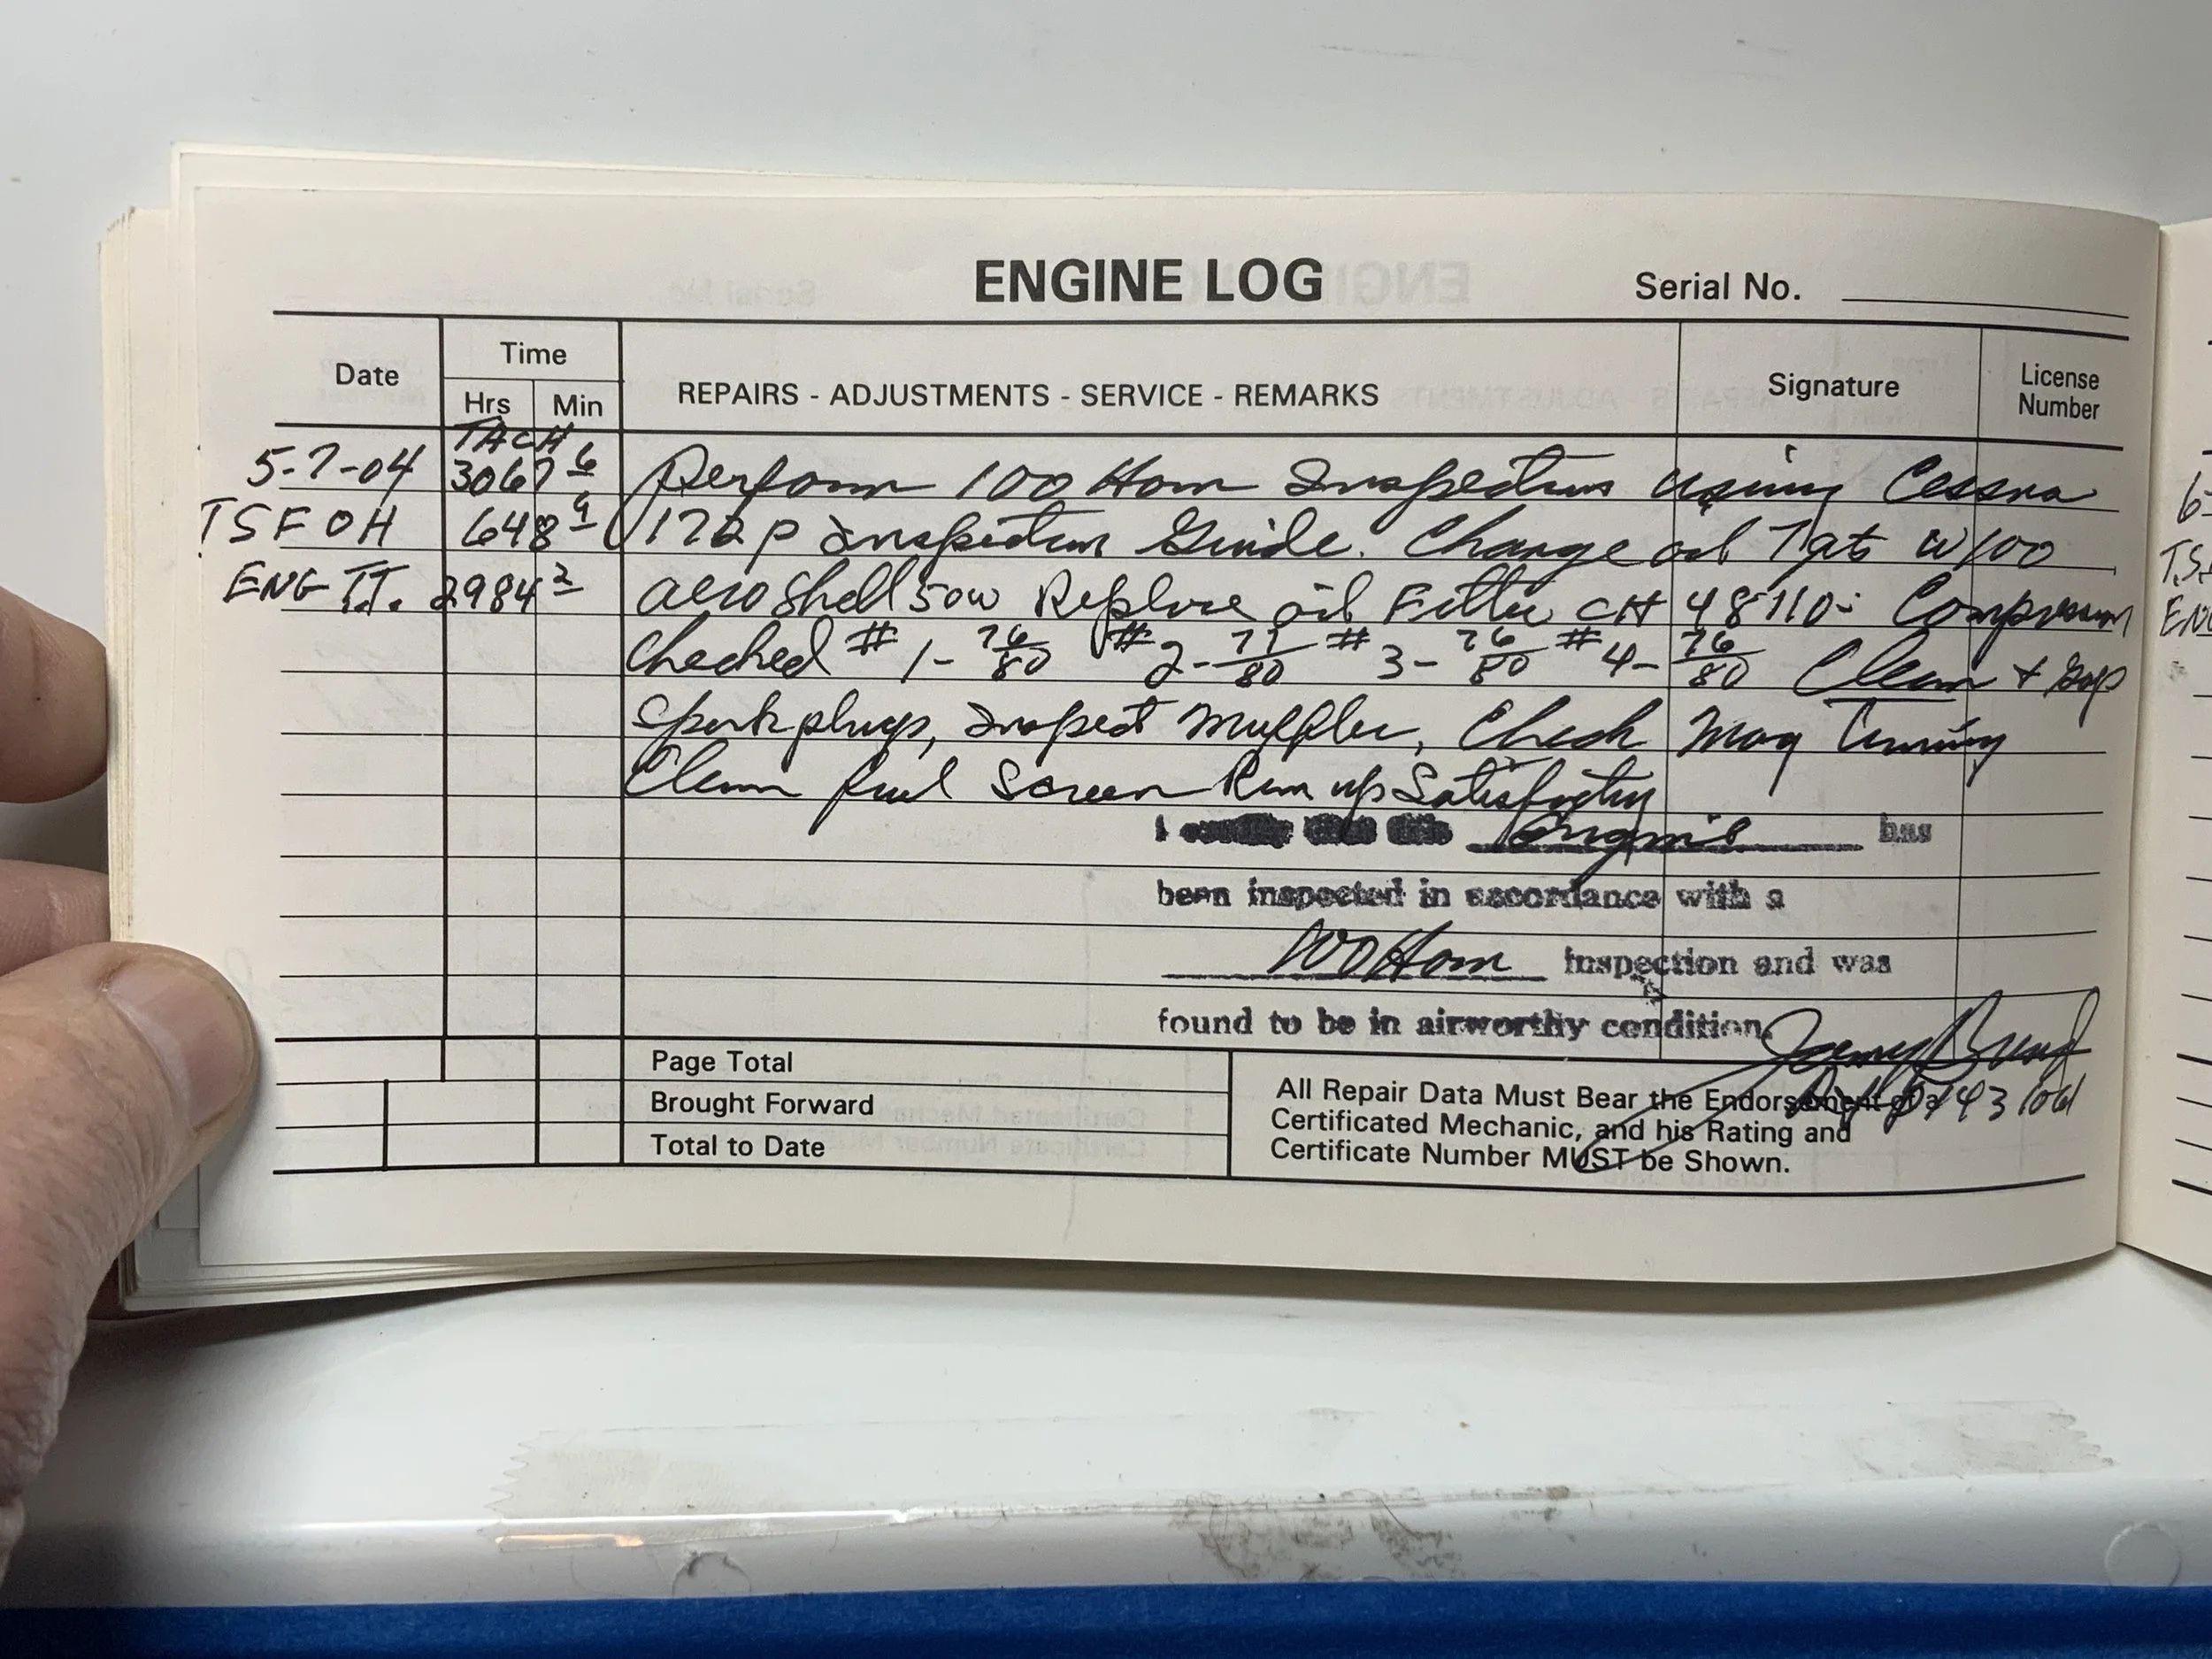 ENGINE LOG Serial No.
Date Time Hrs Min REPAIRS - ADJUSTMENTS - SERVICE - REMARKS Signature License Number
TACH
5-7-04 3067 6 Perform 100 Hour Inspection using Cessna
TSFOH 648 9 172P Inspection Guide. Change oil 7qts W100
ENG T.T. 2984 2 aeroshell 50w Replace oil Filter CH 48110- Compression
checked #1- 76/80 #2- 77/80 #3- 76/80 #4- 76/80 Clean + Gap
Spark plugs, Inspect Muffler, Check Mag Timing
Clean fuel Screen Run up Satisfactory
I certify that this Engine has
been inspected in accordance with a
100 Hour inspection and was
found to be in airworthy condition.
Page Total
Brought Forward
Total to Date
All Repair Data Must Bear the Endorsement of a
Certificated Mechanic, and his Rating and
Certificate Number MUST be Shown.
6-
T.S.
ENG